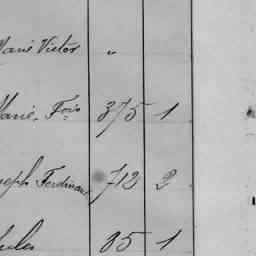 Marie Victor "
Marie, Fois 375 1
Joseph Ferdinand 712 2
Jules 85 1